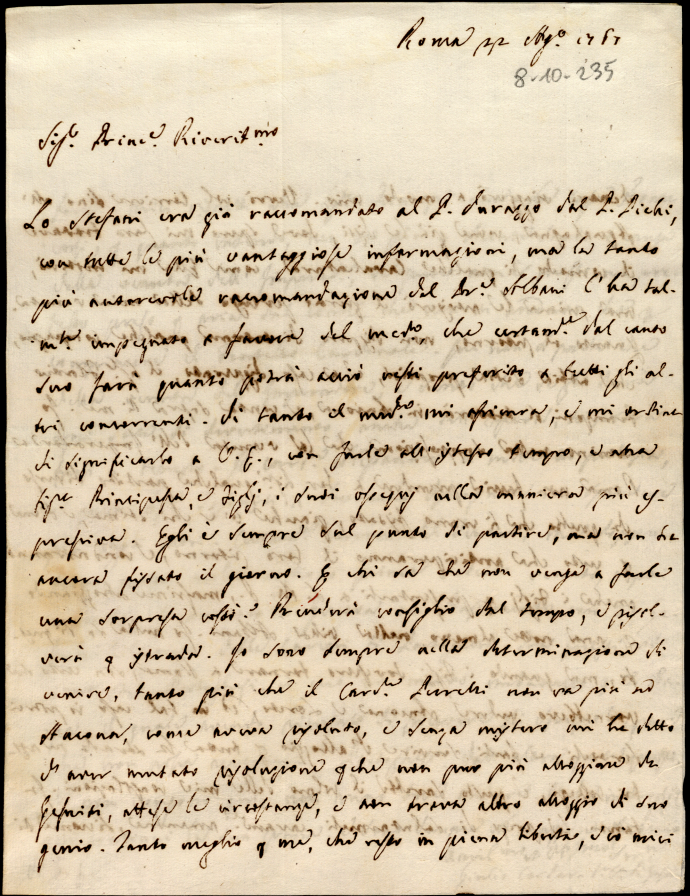 Roma 22 Ag.o 1761
8-10-235
Sig.r Princ.e Riverit.mo
Lo Stefani era già raccomandato al P. Durazzo dal P. Pichi,
con tutte le più vantaggiose informazioni, ma la tanto
più autorevole raccomandazione del Pr.e Albani l'ha tal-
m.te impegnato a favore del med.o, che certam.e dal canto
suo farà quanto potrà acciò resti preferito a tutti gli al-
tri concorrenti. Di tanto il mad.o mi assicura, e mi ordina
di significarlo a V. E., con farle all'istesso tempo, e alla
Sig.ra Principessa, e Figlj, i suoi ossequj nella maniera più es-
pressiva. Egli è sempre sul punto di partire, ma non ha
ancora fissato il giorno. E chi sa che non venga a farle
una sorpresa costì? Prenderà consiglio dal tempo, e risol-
verà q istrada. Io sono sempre nella determinazione di
venire, tanto più che il Card.e non va più ad
come aveva risoluto, e senza mistero mi ha detto
d'aver mutato risoluzione qche non puo più alloggiare da
Gesuiti, attese le circostanze, e non trova altro alloggio di suo
genio. Tanto meglio q me, che resto in piena libertà, e co miei